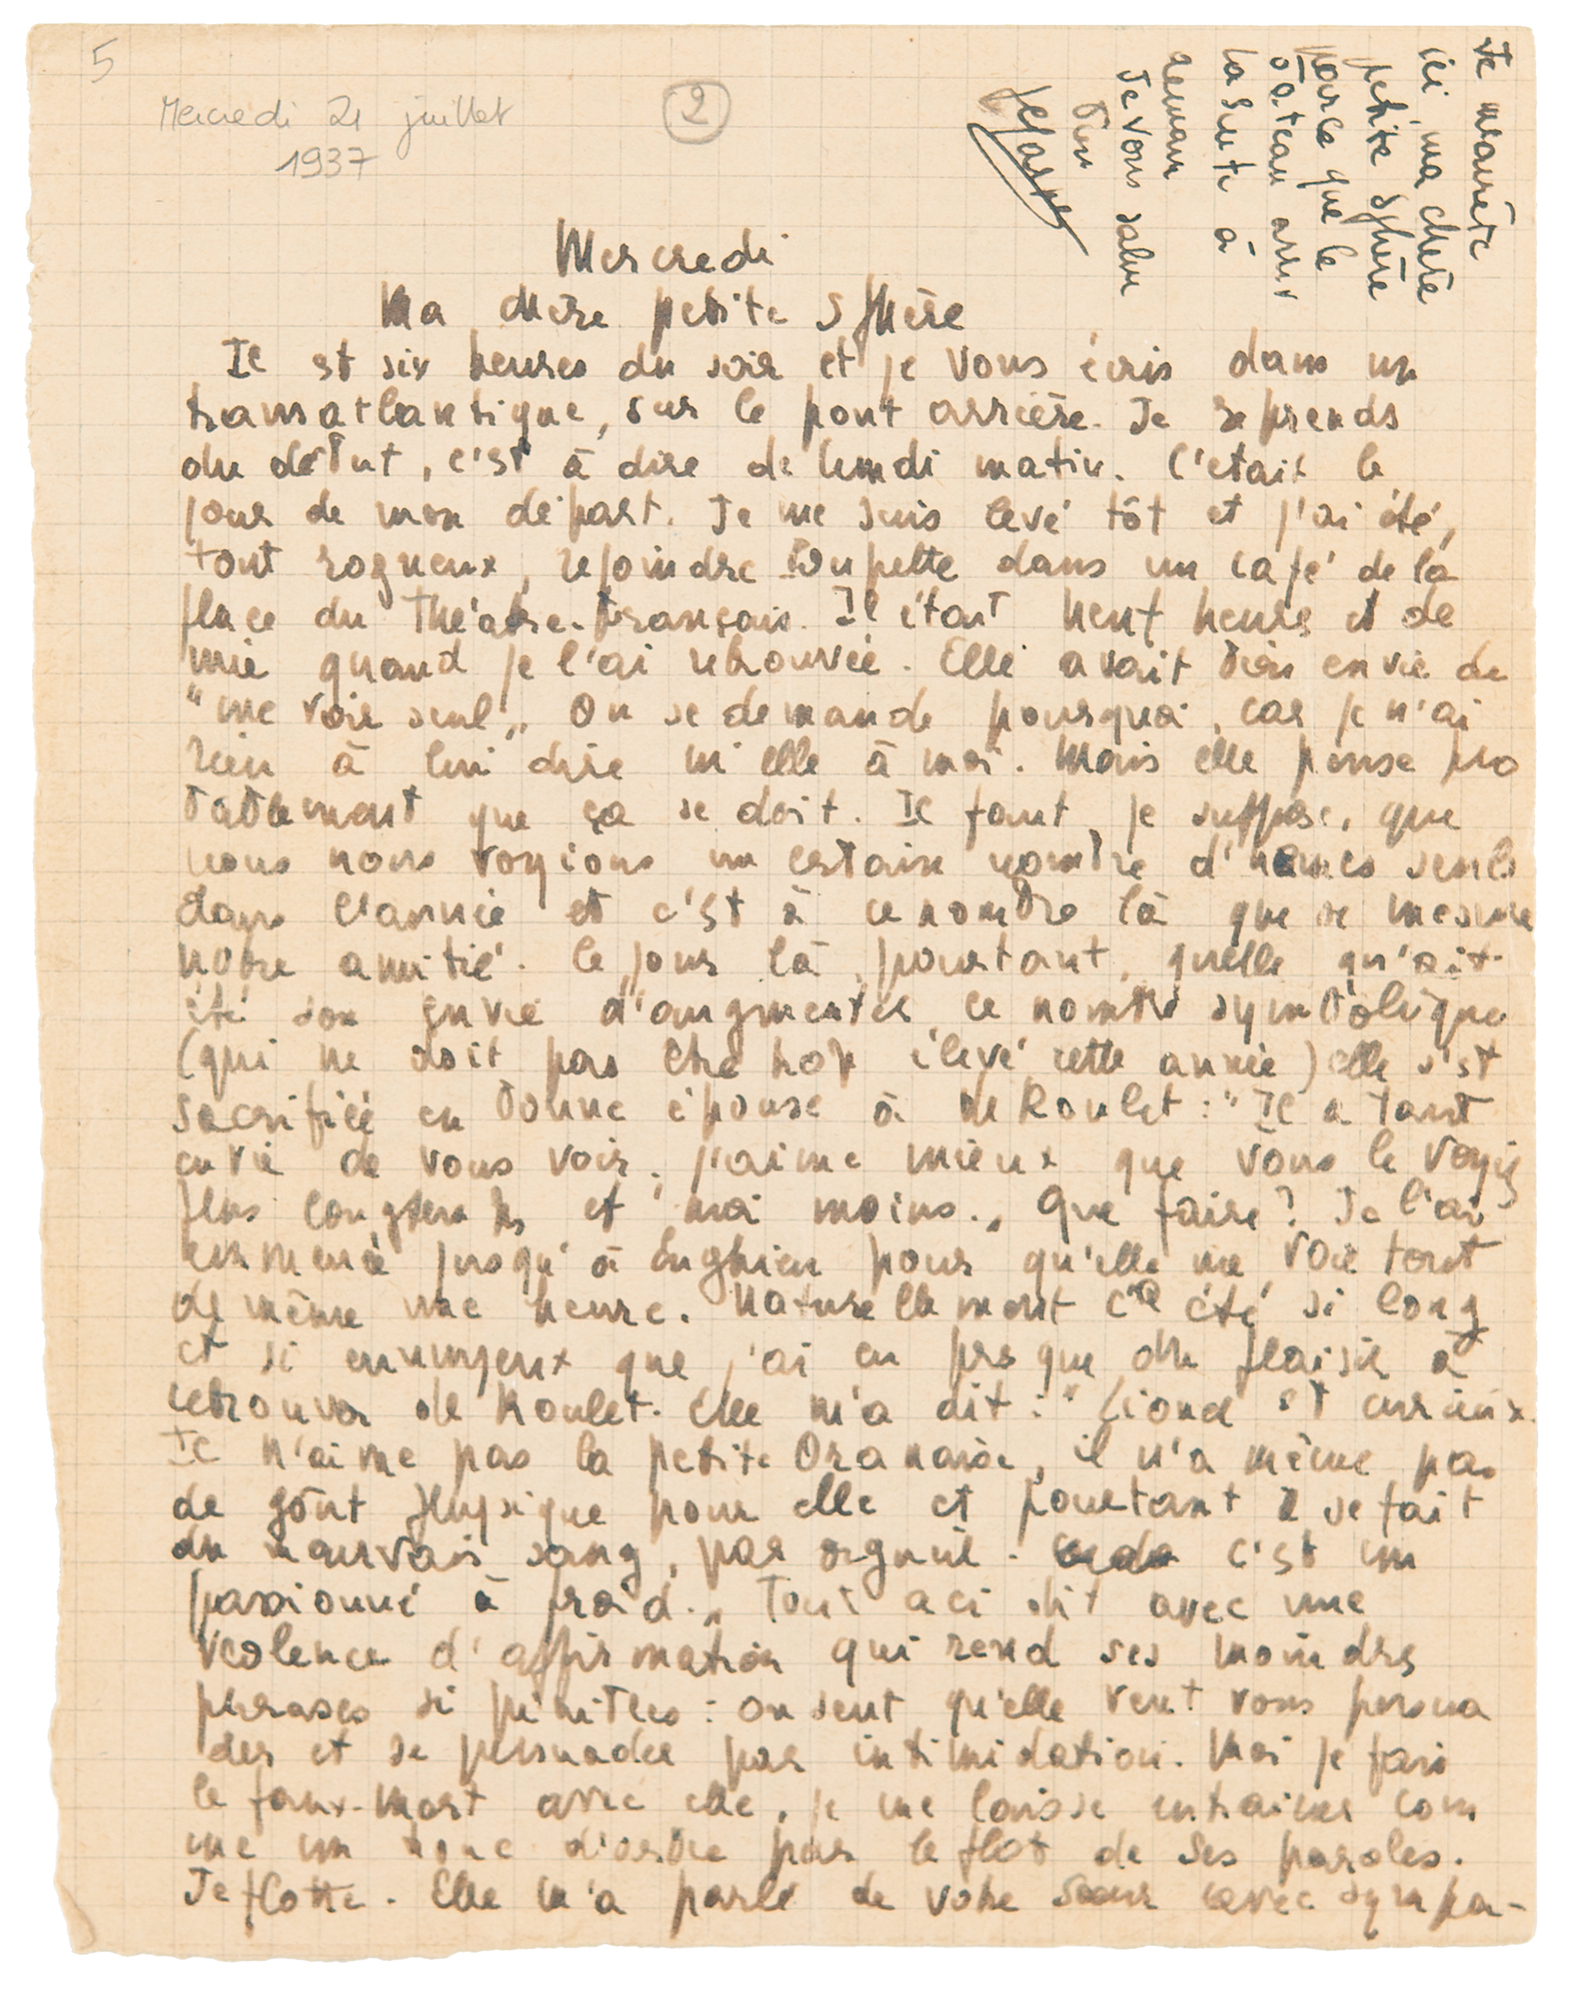 5
Mercredi 21 juillet
1937
2
Mercredi
Ma chère petite Sphère
Il est six heures du soir et je vous écris dans un
transatlantique, sur le pont arrière. Je reprends
du début, c'est à dire de lundi matin. C'etait le
jour de mon départ. Je me suis levé tôt et j'ai été,
tout rogneux, rejoindre Toupette dans un café de la
place du Théatre-Français. Il était neuf heures et de
mie quand je l'ai retrouvée. Elle avait bien envie de
"me voir seul„ On se demande pourquoi, car je n'ai
rien à lui dire ni elle à moi. Mais elle pense pro
bablement que ça se doit. Il faut, je suppose, que
nous nous voyions un certain nombre d'heures seuls
dans l'année et c'est à ce nombre là que se mesure
notre amitié. Ce jour là, pourtant, quelle qu'ait
été son envie d'augmenter ce nombre symbolique
(qui ne doit pas être trop élevé cette année) elle s'est
sacrifiée en bonne épouse à de Roulet : "Il a tant
envie de vous voir, j'aime mieux que vous le voyiez
plus longtemps et moi moins.„ Que faire? Je l'ai
emmené jusqu'à Enghien pour qu'elle me voie tout
de même une heure. Naturellement ç'a été si long
et si ennuyeux que j'ai eu presque du plaisir à
retrouver de Roulet. Elle m'a dit : "Lionel est curieux.
Il n'aime pas la petite Oranaise, il n'a même pas
de goût physique pour elle et pourtant il se fait
du mauvais sang, par orgueil. c'est un
passionné à froid.„ Tout ceci dit avec une
violence d'affirmation qui rend ses moindres
phrases si pénibles : on sent qu'elle veut vous persua
der et se persuader par intimidation. Moi je fais
le faux-mort avec elle, je me laisse entrainer com
me un tronc d'arbre par le flot de ses paroles.
Je flotte. Elle m'a parlé de votre sœur avec sympa-
Je m'arrête
ici, ma chère
petite Sphère
parce que le
bateau arrive
La suite à
demain
Je vous salue
bien